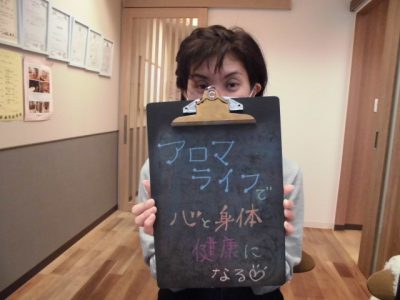 アロマ
ライフで
心と身体
健康に
なる